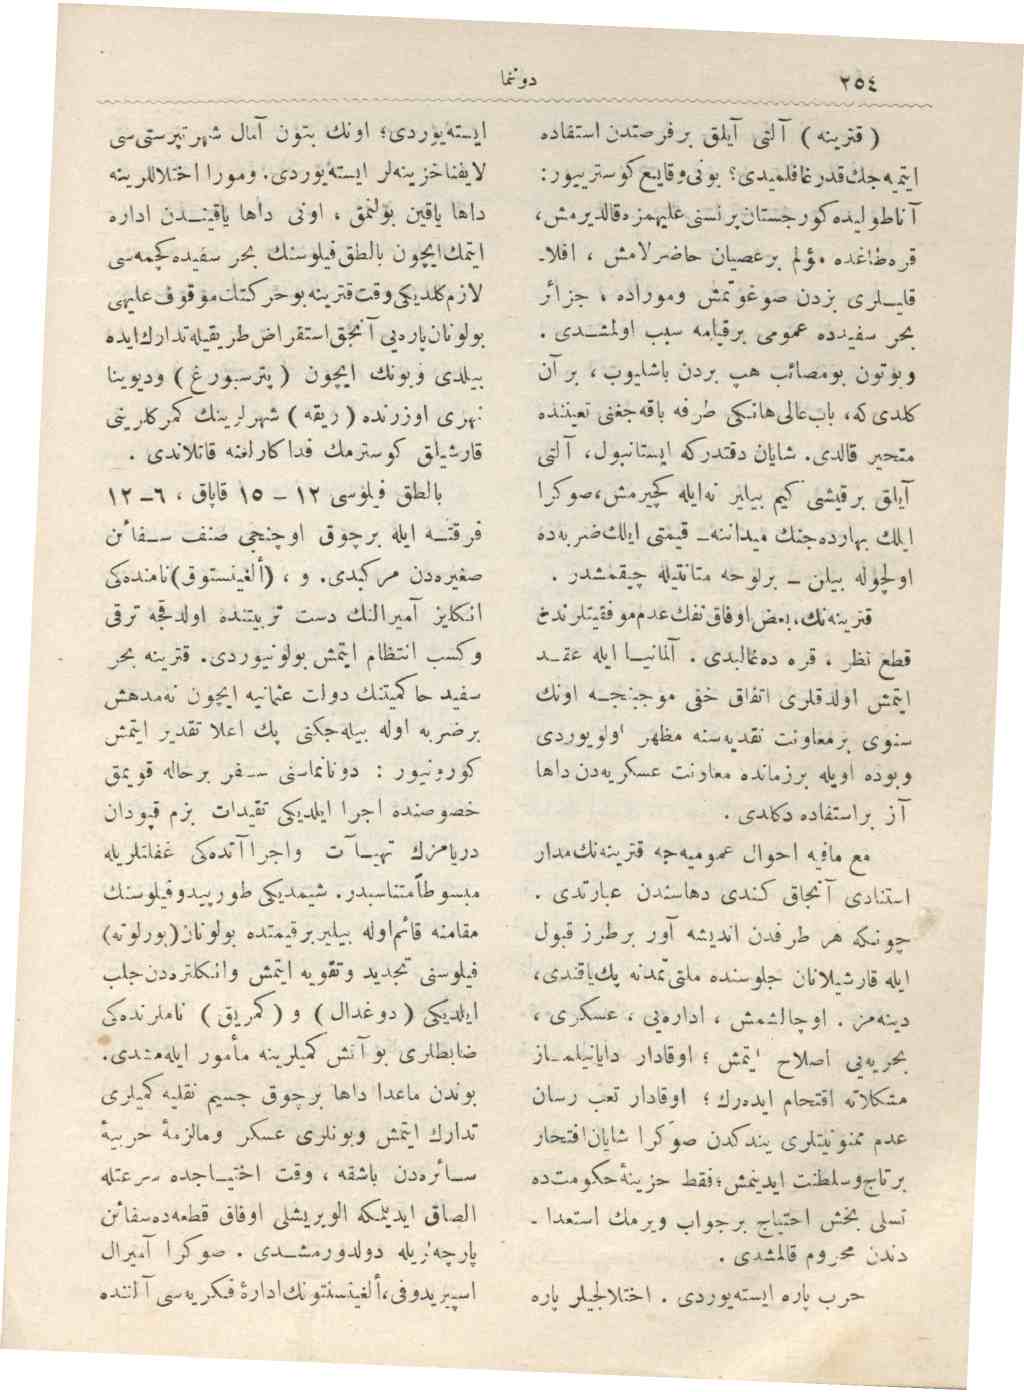 ٢٥٤
دوننما
( قترينه ) آلتى آيلق برفرصتدن استفاده
ايتميه‌جك‌قدر غافلميدى؟ بونى‌وقايع كوسترييور:
آناطوليده كورجستان‌پرنسنى عليهمزه‌قالديرمش،
قره‌طاغده مؤلم برعصيان حاضرلامش ، افلا‌ـ
قليلرى بزدن صوغوتمش وموراده ، جزائر
بحر سفيدده عمومى برقيامه سبب اولمشدى .
وبوتون بومصائب هپ بردن باشليوب ، بر آن
كلدى كه، باب‌عالى‌هانكى طرفه باقه‌جغنى تعيينده
متحير قالدى. شايان دقتدركه ايستانبول، آلتى
آيلق برقيشى كيم بيلير نه‌ايله كچيرمش،صوكرا
ايلك بهارده‌جنك ميداننه‌ـ قيمتى ايلك‌ضربه‌ده
اولچوله بيلن ــ برلوحه متانتيله چيقمشدر .
قترينه‌نك،بعض‌اوفاق‌تفك‌عدم‌موفقيتلرندن
قطع نظر ، قره ده‌غالبدى . آلمانيا ايله عقد
ايتمش اولدقلرى اتفاق خفى موجبنجه اونك
سنوى برمعاونت نقديه‌سنه مظهر اولويوردى
وبوده اويله برزمانده معاونت عسكريه‌دن داها
آز براستفاده دكلدى .
مع مافيه احوال عموميه‌جه قترينه‌نك‌مدار
استنادى آنجاق كندى دهاسندن عبارتدى .
چونكه هر طرفدن انديشه آور برطرز قبول
ايله قارشيلانان جلوسنده ملتى‌تمدنه پك‌ياقندى،
دينه‌مز . اوچالشمش ، اداره‌يى ، عسكرى ،
بحريه‌يى اصلاح ايتمش ؛ اوقادار دايانيلماز
مشكلاته اقتحام ايده‌رك ؛ اوقادار تعب رسان
عدم ممنونيتلرى يندكدن صوكرا شايان‌افتخار
برتاج‌وسلطنت ايدينمش؛فقط حزينۀ‌حكومت‌ده
تسلى بخش احتياج برجواب ويرمك استعدا ـ
دندن محروم قالمشدى .
حرب پاره ايسته‌يوردى . اختلالجيلر پاره
ايسته‌يوردى؛ اونك بتون آمال شهرتپرستى‌سى
لايفناخزينه‌لر ايسته‌يوردى. ومورا اختلاللرينه
داها ياقين بولنمق ، اونى داها ياقيندن اداره
ايتمك‌ايچون بالطق‌فيلوسنك بحر سفيده‌كچمه‌سى
لازم‌كلديكى‌وقت‌قترينه‌بوحركتك‌موقوف‌عليهى
بولونان‌پاره‌يى آنجق‌استقراض‌طريقيله‌تدارك‌ايده
بيلدى وبونك ايچون ( پترسبورغ ) وديوينا
نهرى اوزرنده ( ريقه ) شهرلرينك كمركلرينى
قارشيلق كوسترمك فداكارلغنه قاتلاندى .
بالطق فيلوسى ١٢ ــ ١٥ قاپاق ، ٦ــ١٢
فرقته ايله برچوق اوچنجى صنف سفائن
صغيره‌دن مركبدى. و ، (ألفينستوق)نامنده‌كى
انكليز آميرالنك دست تربيتنده اولدقجه ترقى
وكسب انتظام ايتمش بولونيوردى. قترينه بحر
سفيد حاكميتنك دولت عثمانيه ايچون نه‌مدهش
برضربه اوله بيله‌جكنى پك اعلا تقدير ايتمش
كورونيور : دونانماسنى سفر برحاله قويمق
خصوصنده اجرا ايلديكى تقيدات بزم قپودان
دريامزك تهيآت واجراآتده‌كى غفلتلريله
مبسوطاًمتناسبدر. شيمديكى طورپيدوفيلوسنك
مقامنه قائم‌اوله بيليربرقيمتده بولونان(بورلوته)
فيلوسنى تجديد وتقويه ايتمش وانكلتره‌دن‌جلب
ايلديكى ( دوغدال ) و ( كمريق ) ناملرنده‌كى
ضابطلرى بو آتش كميلرينه مأمور ايله‌مشدى.
بوندن ماعدا داها برچوق جسيم نقليه كميلرى
تدارك ايتمش وبونلرى عسكر ومالزمۀ حربيۀ
سائره‌دن باشقه ، وقت احتياجده سرعتله
الصاق ايديلمكه الويريشلى اوفاق قطعه‌ده‌سفائن
پارچه‌لريله دولدورمشدى . صوكرا آميرال
اسپيريدوفى،ألفينستونك‌ادارۀ فكريه‌سى آلتنده